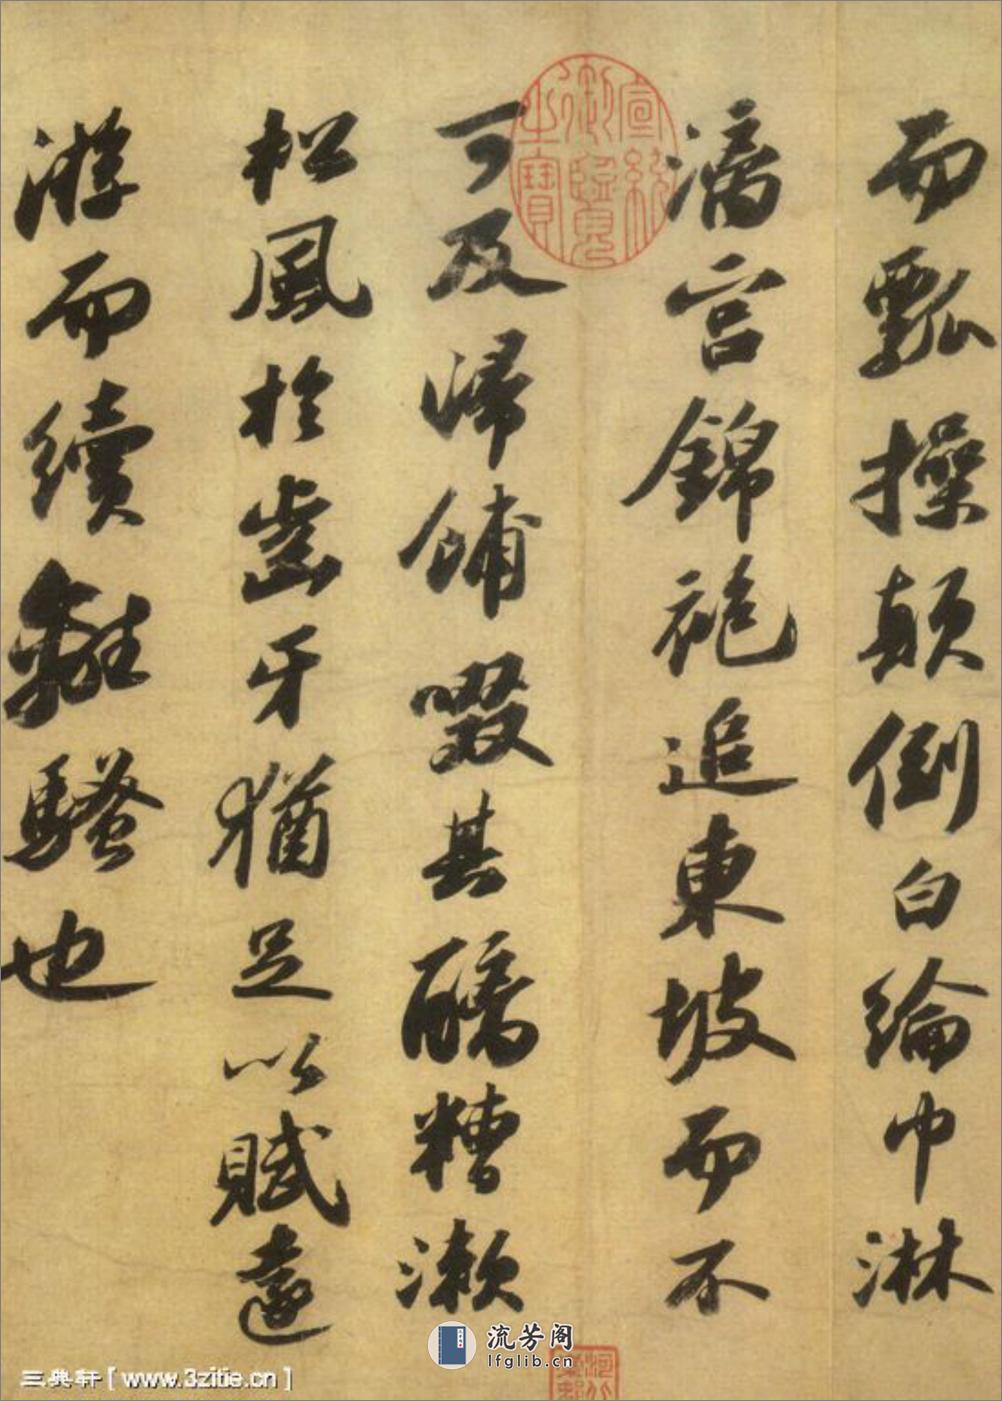 而瓢操顛倒白綸巾淋
漓宫錦袍追東坡而不
可及歸餔啜其醨糟漱
松風於齒牙猶足以賦遠
游而續離騷也
宣統御覽之寶
流芳阁
lfglib.cn
三典轩[www.3zitie.cn]